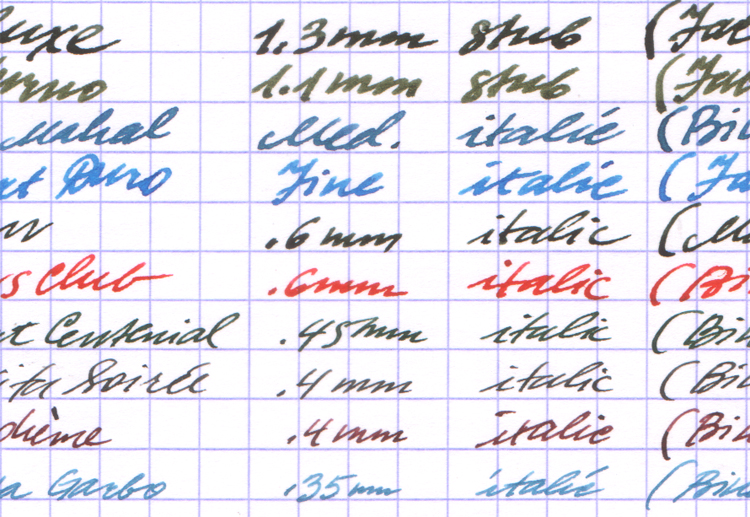 luxe 1.3mm stub
urno 1.1mm stub
Mahal Med. italic (Bin
rt Duro Fine italic
.6mm italic
s Club .6mm italic (Bi
t Centenial .45mm italic (Bin
ita Soirée .4mm italic (Bin
ohème .4mm italic (Bin
a Garbo .35mm italic (Bin